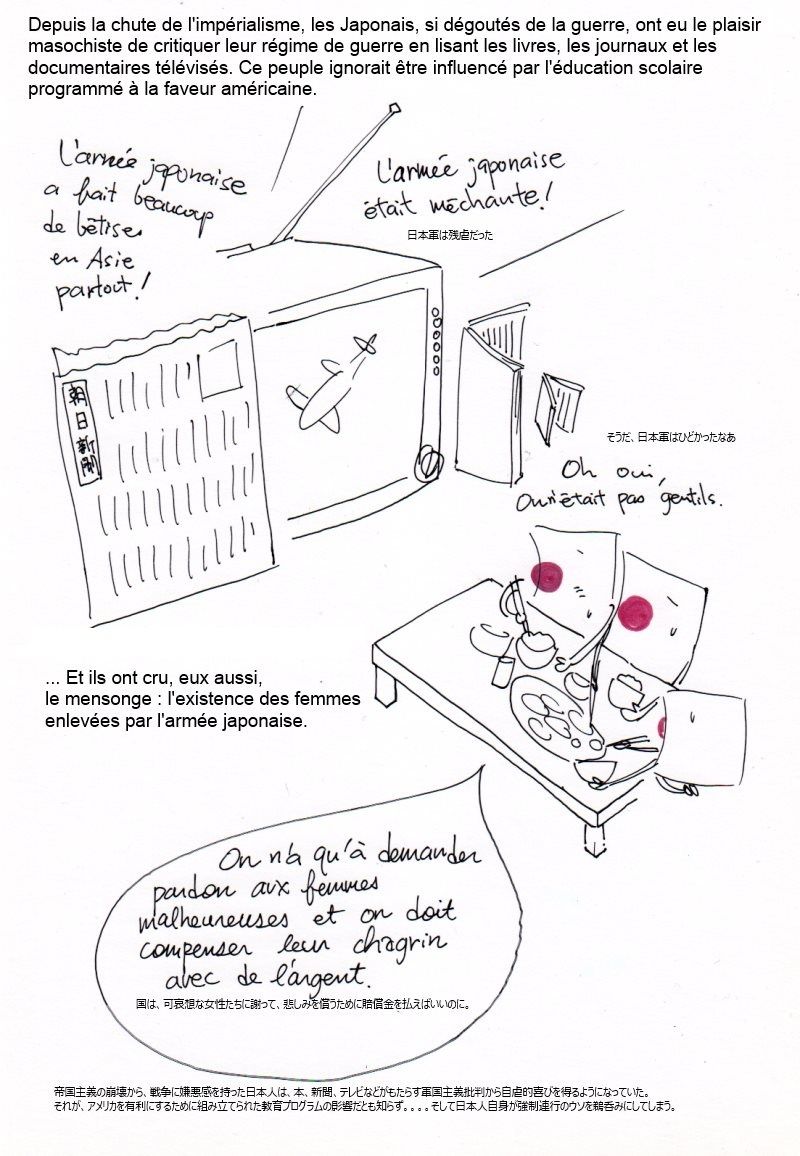 Depuis la chute de l'impérialisme, les Japonais, si dégoutés de la guerre, ont eu le plaisir
masochiste de critiquer leur régime de guerre en lisant les livres, les journaux et les
documentaires télévisés. Ce peuple ignorait être influencé par l'éducation scolaire
programmé à la faveur américaine.
L'armée japonaise
a fait beaucoup
de bêtises
en Asie
partout!
L'armée japonaise
était méchante!
日本軍は残虐だった
朝日新聞
そうだ、日本軍はひどかったなあ
Oh oui,
On n'était pas gentils.
... Et ils ont cru, eux aussi,
le mensonge : l'existence des femmes
enlevées par l'armée japonaise.
On n'a qu'à demander
pardon aux femmes
malheureuses et on doit
compenser leur chagrin
avec de l'argent.
国は、可哀想な女性たちに謝って、悲しみを償うために賠償金を払えばいいのに。
帝国主義の崩壊から、戦争に嫌悪感を持った日本人は、本、新聞、テレビなどがもたらす軍国主義批判から自虐的喜びを得るようになっていた。
それが、アメリカを有利にするために組み立てられた教育プログラムの影響だとも知らず。。。。そして日本人自身が強制連行のウソを鵜呑みにしてしまう。